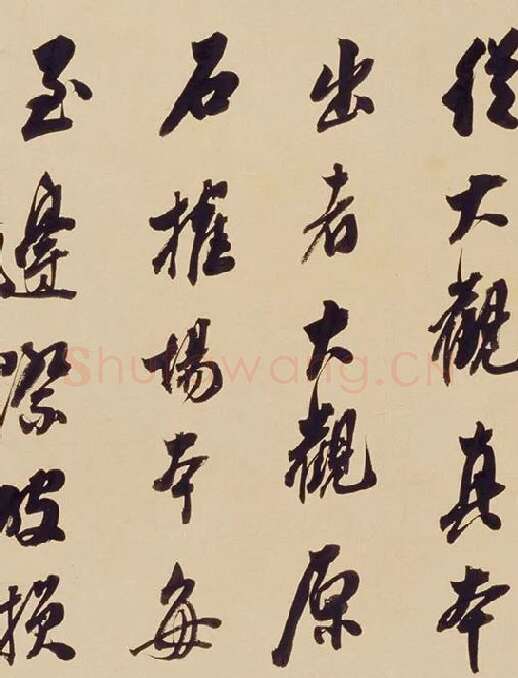 從大觀真本
出者大觀原
石搉場本每
至邊際破損
Shufawang.CN